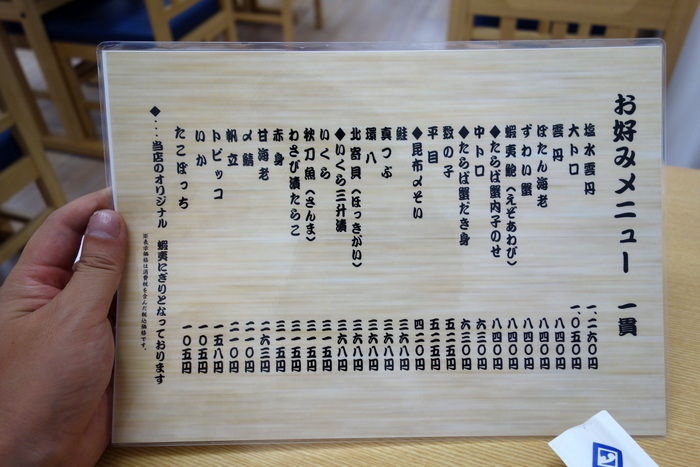 お好みメニュー 一貫
塩水雲丹 一、二六〇円
大トロ 一、〇五〇円
雲丹 八四〇円
ぼたん海老 八四〇円
ずわい蟹 八四〇円
蝦夷鮑(えぞあわび) 八四〇円
◆たらば蟹内子のせ 八四〇円
中トロ 六三〇円
◆たらば蟹だき身 六三〇円
数の子 五二五円
平目 五二五円
◆昆布〆そい 四二〇円
鮭 三六八円
真つぶ 三六八円
環八 三六八円
北寄貝(ほっきがい) 三六八円
◆いくら三升漬 三六八円
いくら 三一五円
秋刀魚(さんま) 三一五円
わさび漬たらこ 三一五円
赤身 三一五円
甘海老 二六三円
〆鯖 二一〇円
帆立 二一〇円
トビッコ 一五八円
いか 一〇五円
たこぽっち 一〇五円
◆・・・当店のオリジナル 蝦夷にぎりとなっております
※表示価格は消費税を含んだ税込価格です。